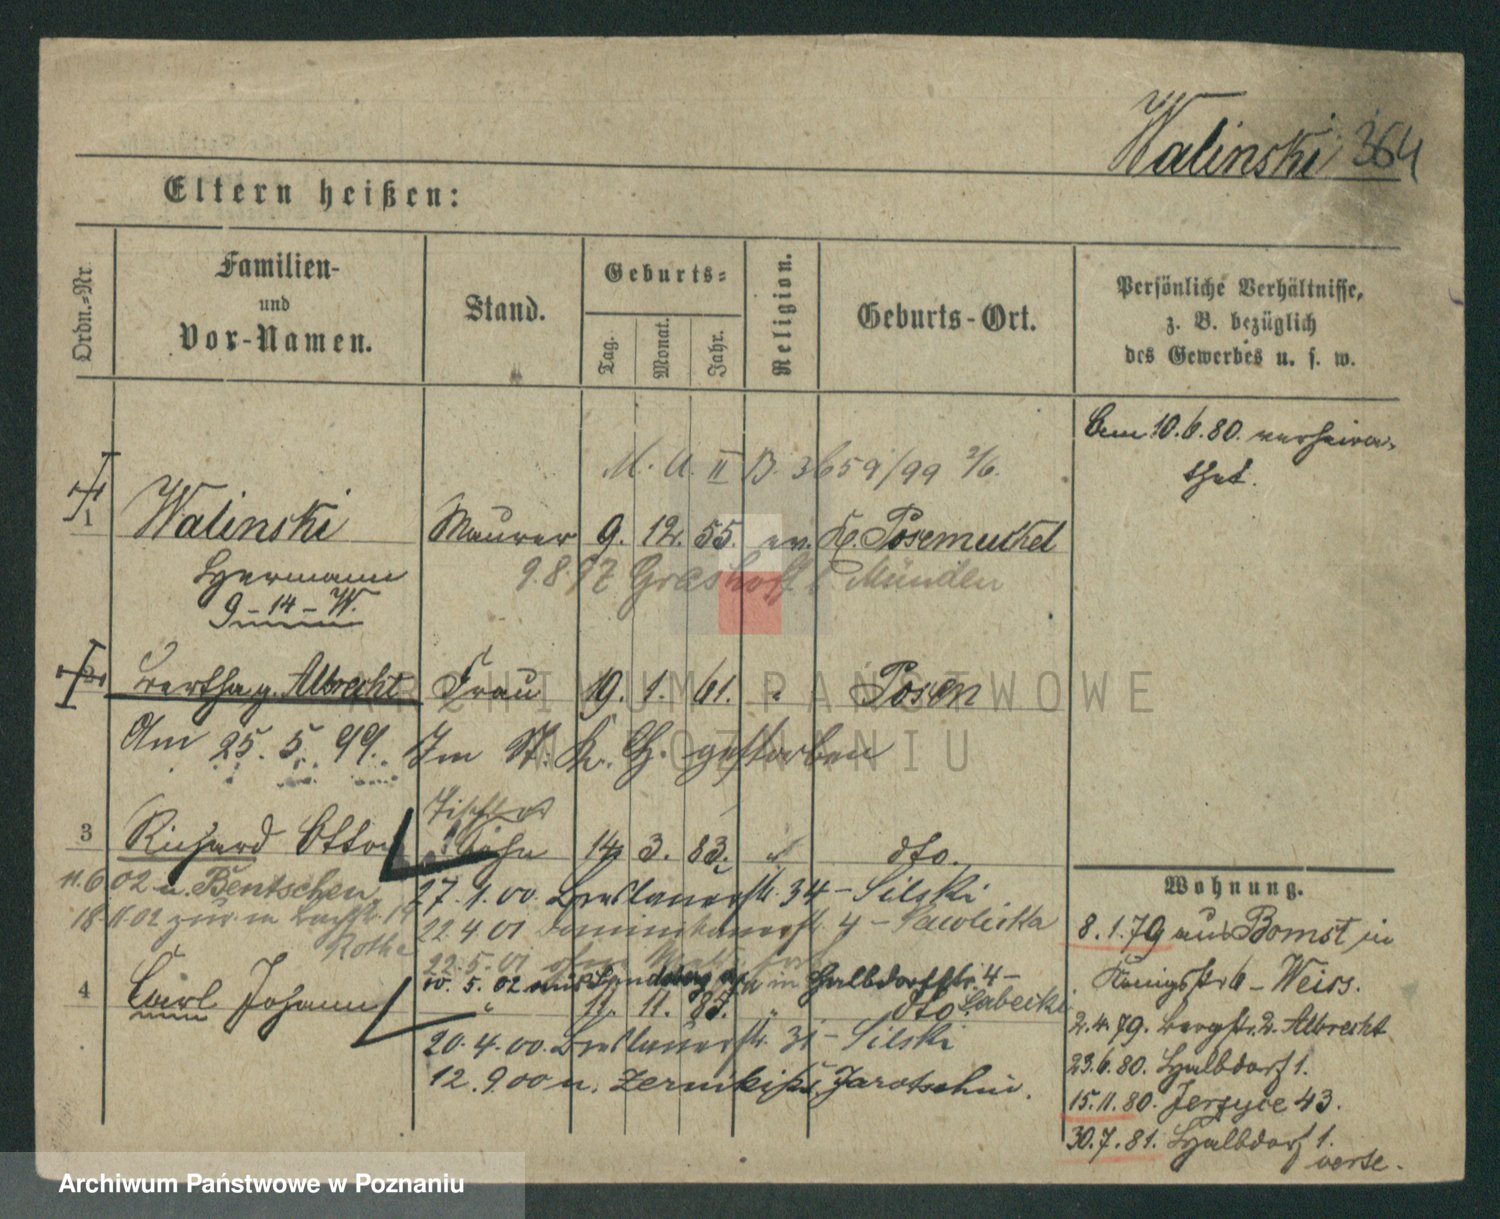 Walinski 364
Eltern heißen:
Ordn.-Nr.
Familien-
und
Vor-Namen.
Stand.
Geburts-
Tag.
Monat.
Jahr.
Religion.
Geburts-Ort.
Persönliche Verhältnisse,
z. B. bezüglich
des Gewerbes u. s. w.
Am 10.6.80. verheira-
thet.
M. A. II B 3659/99 2/6.
1 Walinski Maurer 9. 12. 55. ev. K. Posemuckel
Hermann 9.8.97 Münden
9-14-W.
2 Bertha g. Albrecht Frau 19. 1. 61. " Posen
Am 25. 5. 99. Im St. K. H. gestorben
Tischler
3 Richard Otto Sohn 14. 3. 83. " dto.
11.6 02 n. Bentschen 27.1.00. Breslauerstr. 34 - Silski
18.11 02 zur. in 22.4 01 Dominikanerstr. 4 -
Rothe 22.5.01
10. 5. 02 aus Landsberg in Halbdorfstr. 4 -
4 Carl Johann " 11. 11. 85. " dto.
20.4.00. Breslauerstr. 31 - Silski
12.9 00 n. Jarotschin.
Wohnung.
8.1.79 aus Bomst in
Königstr 6 - Weiss.
2.4.79. Bergstr. 2. Albrecht
23.6.80. Halbdorf 1.
15.11.80. Jerzyce 43.
30.7.81. Halbdorf 1.
verte.
ARCHIWUM PAŃSTWOWE
W POZNANIU
Archiwum Państwowe w Poznaniu